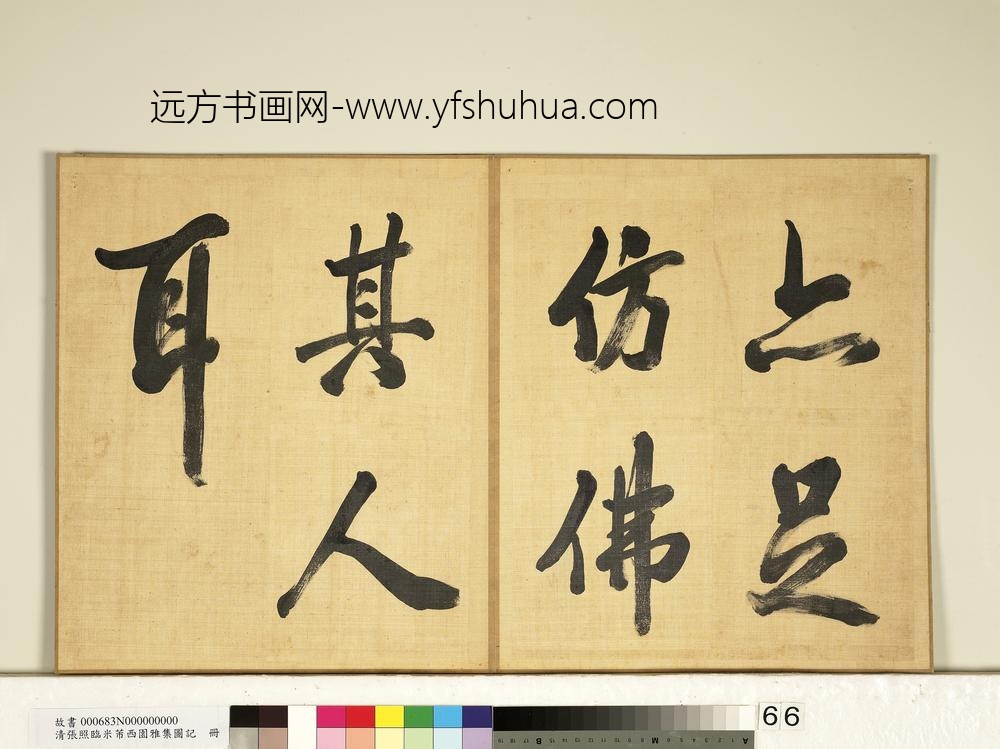 远方书画网-www.yfshuhua.com
亦足
仿佛
其人
耳
故書 000683N000000000
清張照臨米芾西園雅集圖記 冊
66